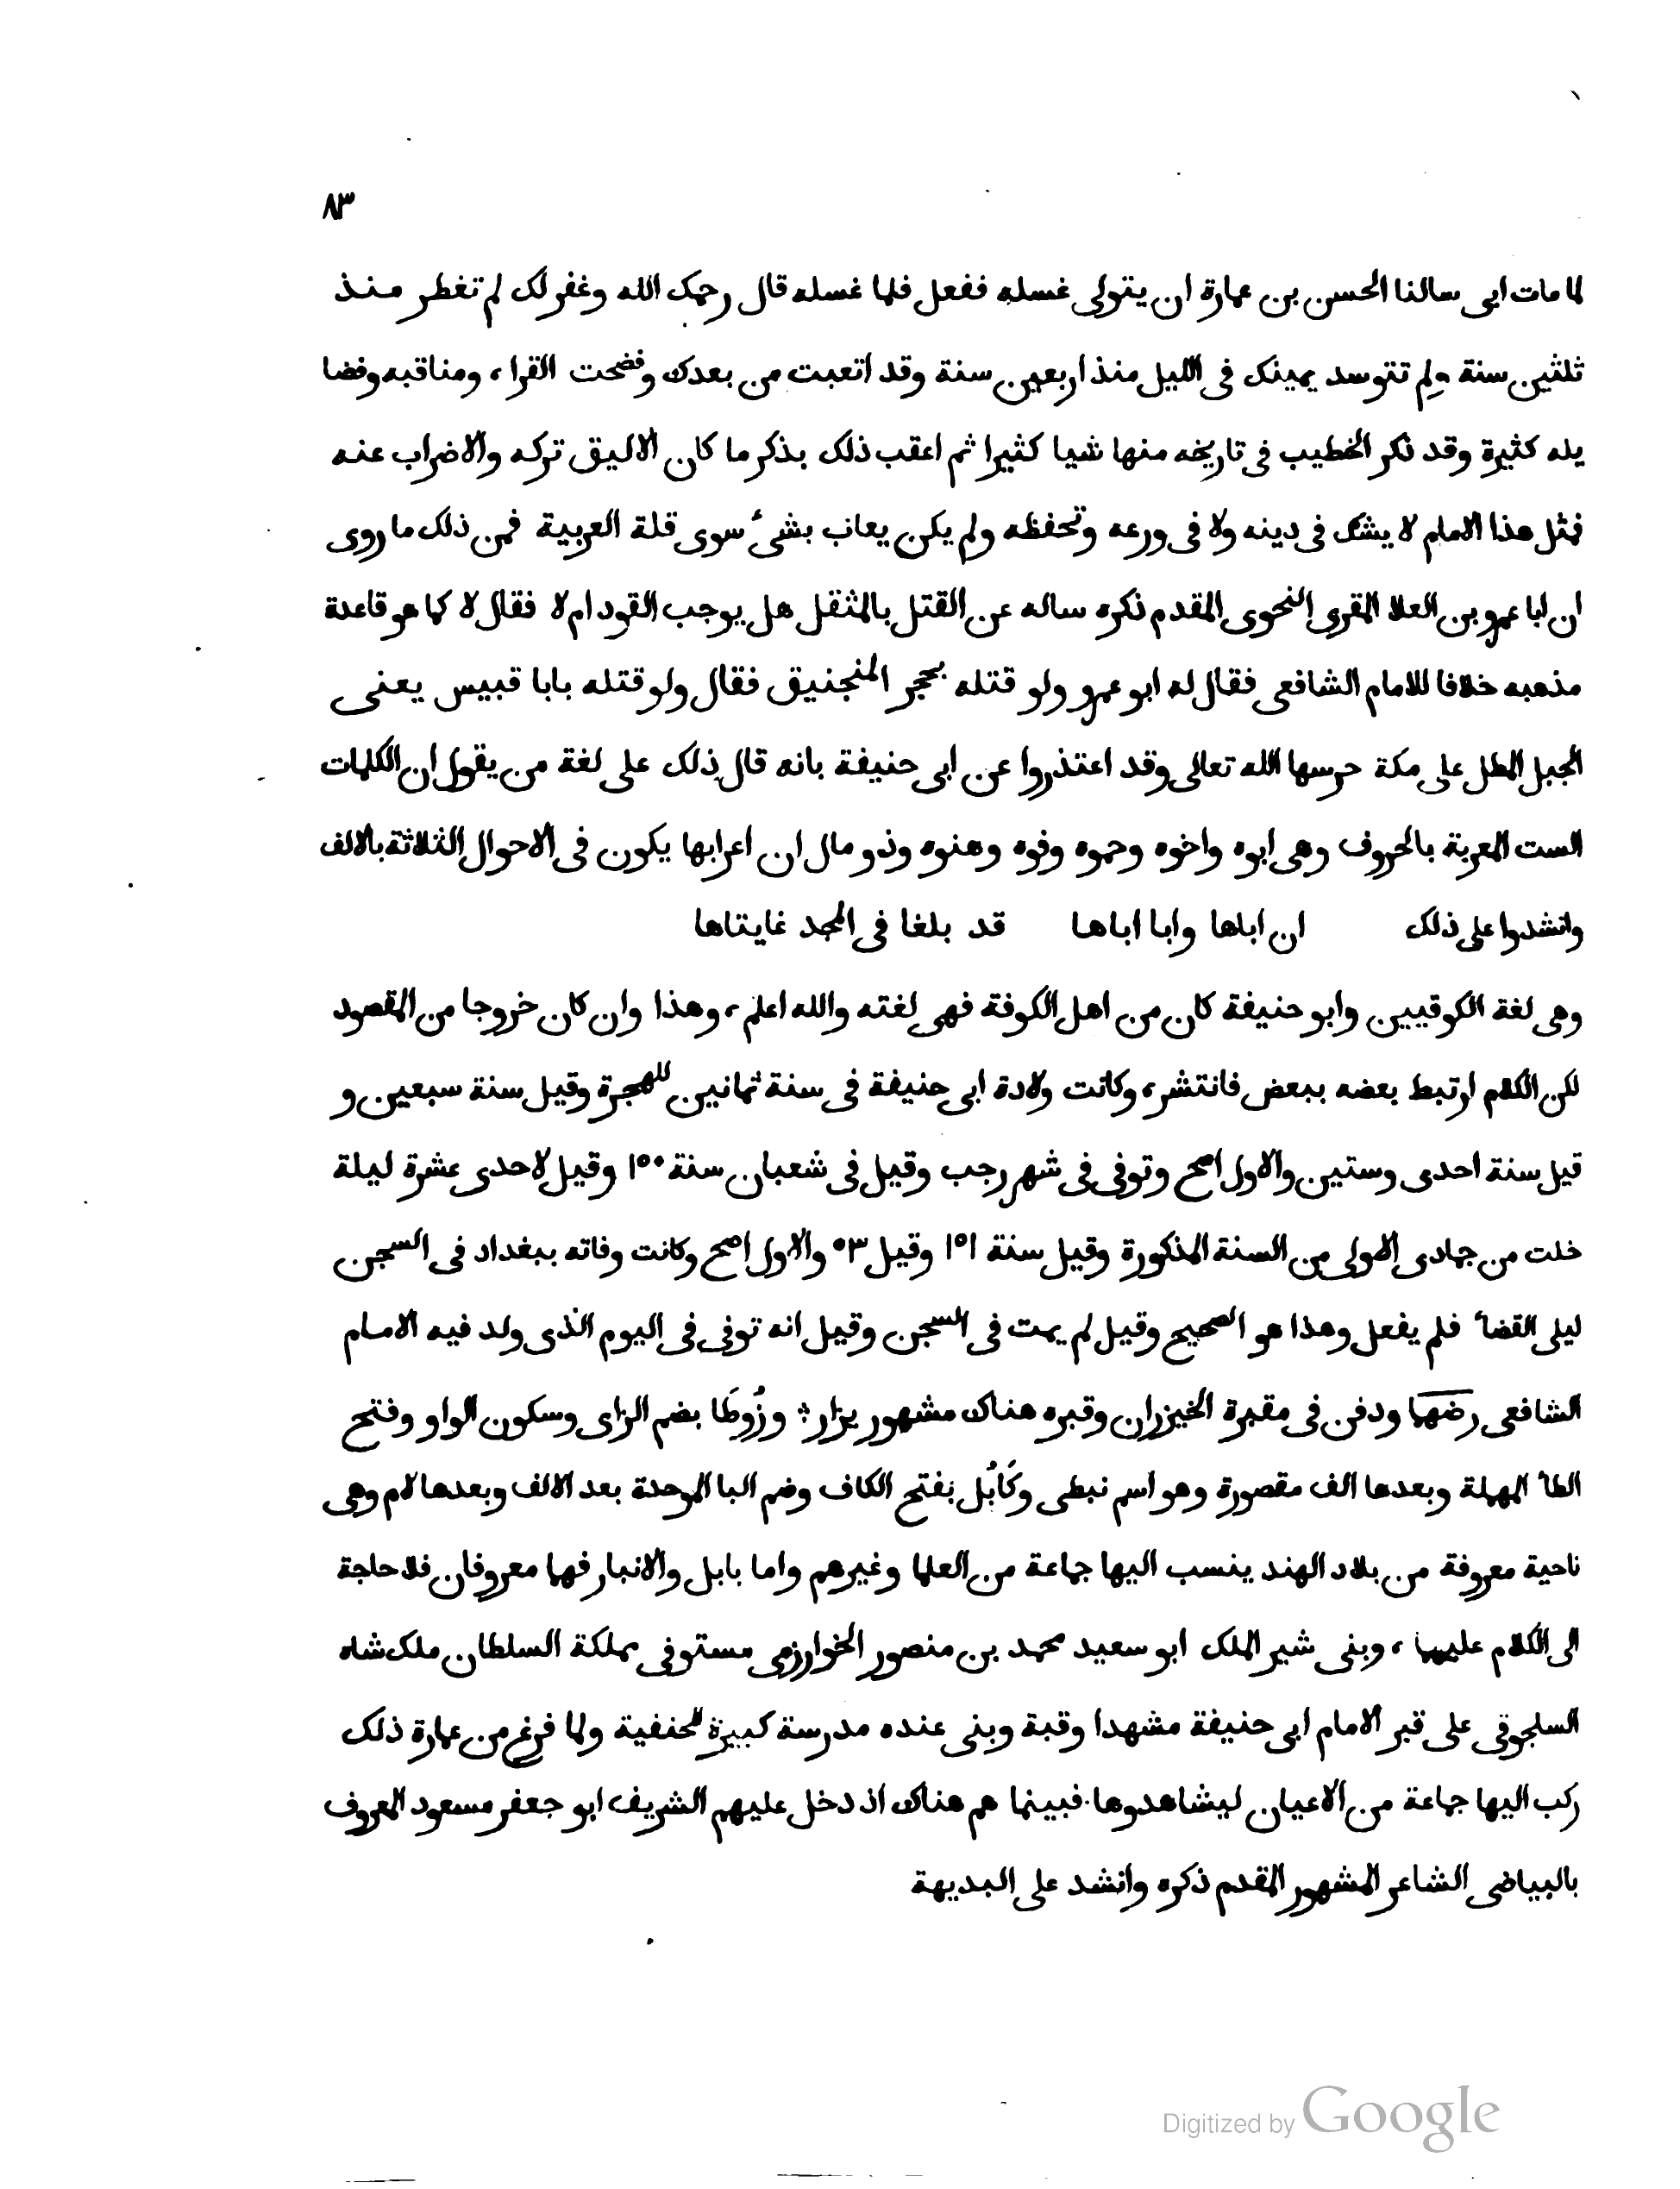 ٨٣
لما مات ابى سالنا الحسن بن عمارة ان يتولى غسله ففعل فلما غسله قال رحمك الله وغفر لك لم تفطر منذ
ثلثين سنة ولم تتوسد يمينك فى الليل منذ اربعين سنة وقد اتعبت من بعدك وفضحت القراء، ومناقبه وفضا
يله كثيرة وقد ذكر الخطيب فى تاريخه منها شيا كثيرا ثم اعقب ذلك بذكر ما كان الاليق تركه والاضراب عنه
فمثل هذا الامام لا يشك فى دينه ولا فى ورعه وتحفظه ولم يكن يعاب بشىء سوى قلة العربية فمن ذلك ما روى
ان ابا عمرو بن العلا المقرى النحوى المقدم ذكره ساله عن القتل بالمثقل هل يوجب القود ام لا فقال لا كما هو قاعدة
مذهبه خلافا للامام الشافعى فقال له ابو عمرو ولو قتله بحجر المنجنيق فقال ولو قتله بابا قبيس يعنى
الجبل المطل على مكة حرسها الله تعالى وقد اعتذروا عن ابى حنيفة بانه قال ذلك على لغة من يقول ان الكلمات
الست المعربة بالحروف وهى ابوه واخوه وحموه وفوه وهنوه وذو مال ان اعرابها يكون فى الاحوال الثلاثة بالالف
وانشدوا على ذلك ان اباها وابا اباها قد بلغا فى المجد غايتاها
وهى لغة الكوفيين وابو حنيفة كان من اهل الكوفة فهى لغته والله اعلم، وهذا وان كان خروجا من المقصود
لكن الكلام ارتبط بعضه ببعض فانتشر، وكانت ولادة ابى حنيفة فى سنة ثمانين للهجرة وقيل سنة سبعين و
قيل سنة احدى وستين والاول اصح وتوفى فى شهر رجب وقيل فى شعبان سنة ١٥٠ وقيل لاحدى عشرة ليلة
خلت من جمادى الاولى من السنة المذكورة وقيل سنة ١٥١ وقيل ٥٣ والاول اصح وكانت وفاته ببغداد فى السجن
ليلى القضاء فلم يفعل وهذا هو الصحيح وقيل لم يمت فى السجن وقيل انه توفى فى اليوم الذى ولد فيه الامام
الشافعى رضهما ودفن فى مقبرة الخيزران وقبره هناك مشهور يزار ؛ وزُوطَا بضم الزاى وسكون الواو وفتح
الطاء المهملة وبعدها الف مقصورة وهو اسم نبطى وكَابُل بفتح الكاف وضم البا الموحدة بعد الالف وبعدها لام وهى
ناحية معروفة من بلاد الهند ينسب اليها جماعة من العلما وغيرهم واما بابل والانبار فهما معروفان فلا حاجة
الى الكلام عليهما، وبنى شير الملك ابو سعيد محمد بن منصور الخوارزمى مستوفى مملكة السلطان ملك شاه
السلجوقى على قبر الامام ابى حنيفة مشهدا وقبة وبنى عنده مدرسة كبيرة للحنفية ولما فرغ من عمارة ذلك
ركب اليها جماعة من الاعيان ليشاهدوها فبينما هم هناك اذ دخل عليهم الشريف ابو جعفر مسعود المعروف
بالبياضى الشاعر المشهور المقدم ذكره وانشد على البديهة
Digitized by Google